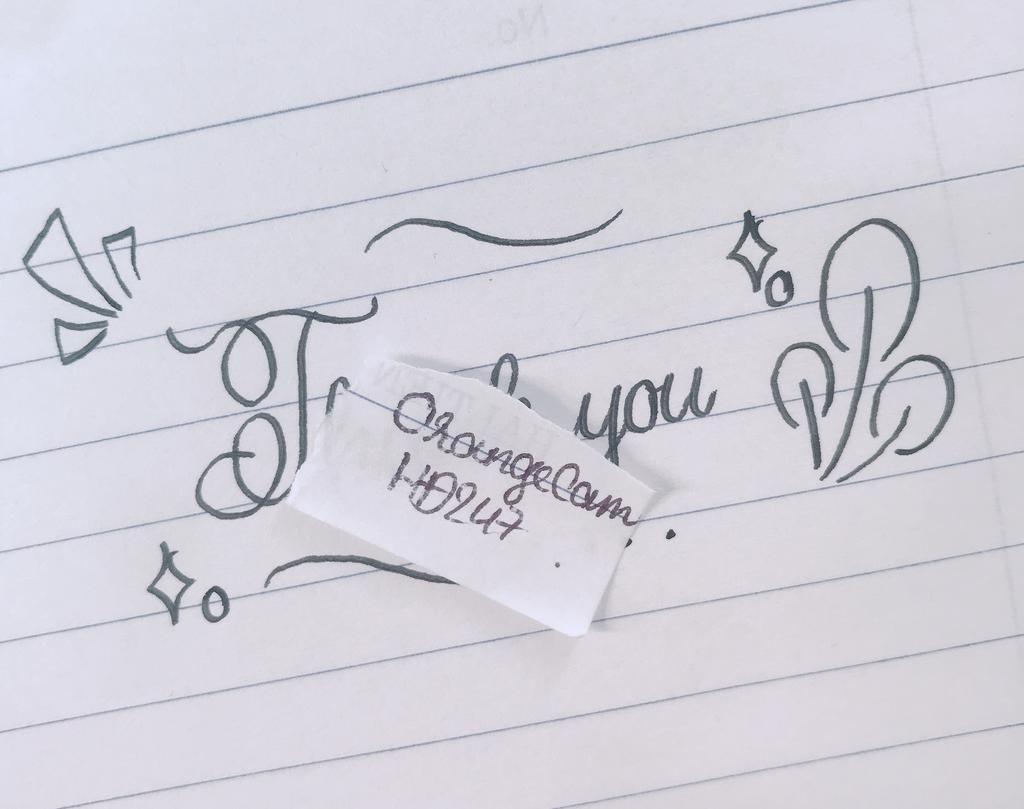 Th k you
OrangeCam
HD247